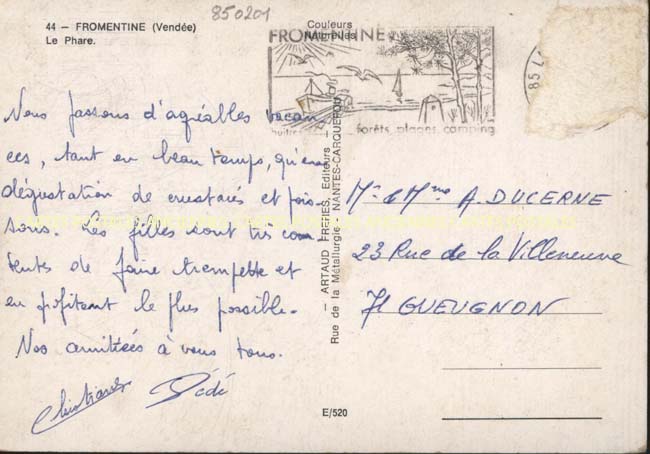 850201
44 — FROMENTINE (Vendée)
Le Phare.
Couleurs
Naturelles
FROMENTINE
forêts, plages, camping
85 L
Nous passons d'agréables vacan
ces, tant en beau temps, qu'en
dégustation de crustacés et pois-
sons. Les filles sont très con
tentes de faire trempette et
en profitent le plus possible.
Nos amitiées à vous tous.
Christiane Dédé
— ARTAUD FRÈRES, Editeurs —
Rue de la Métallurgie - NANTES-CARQUEFOU
E/520
Mr & Mme A. DUCERNE
23 Rue de la Villeneuve
71 GUEUGNON